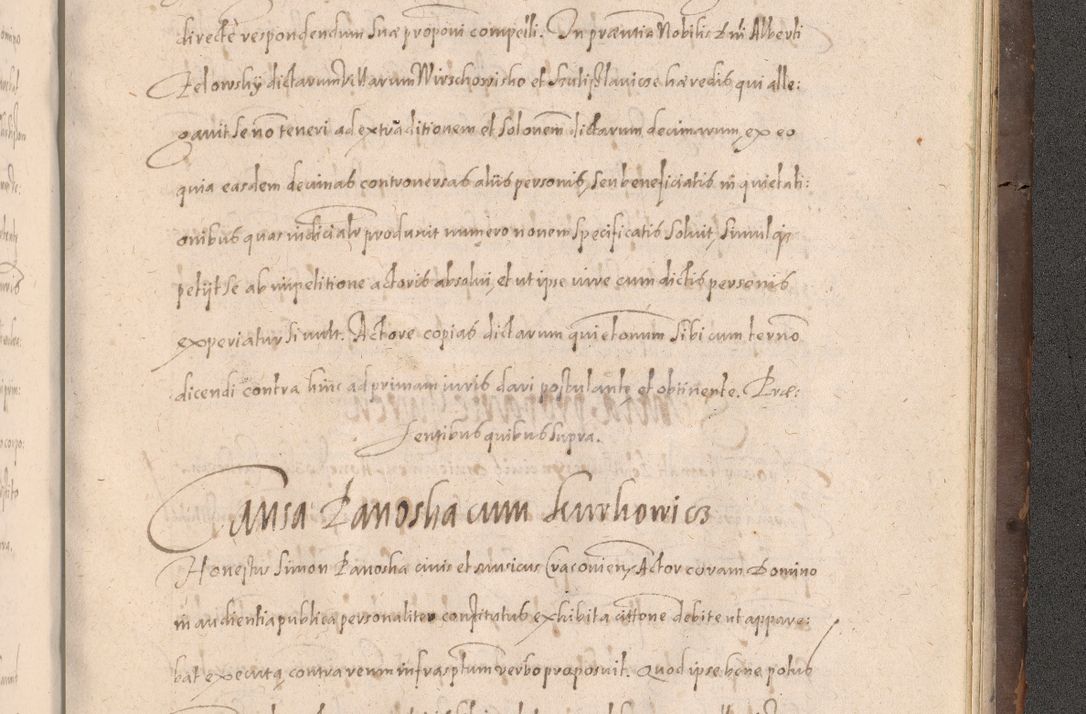 directe respondendum suae proponi compelli. In praesentia Nobilis Dni Alberti
Zelowsky dictarum villarum Wirschowisko et haeredis qui alle:
gavit se no teneri ad extraditionem et solonem dictarum decimarum, ex eo
quia easdem decimas controversas aliis personis, seu beneficiatis in quietati:
onibus quas iudicialr produxit numero novem specificatis solvit, simulq
petijt se ab impetitione actoris absolvi, et ut ipse iure cum dictis personis
experiatur si vult. Actore copias dictarum quietonum sibi cum termo
dicendi contra hinc ad primam iuris dari postulante et obtinente. Prae:
sentibus quibus supra.
Causa Panoska cum Kurkowicz
Honestus Simon Panoska civis et musicus Cracovien, Actor coram Domino
in audientia publica personaliter constitutus exhibita cittone debite ut appare:
bat executa contra reum infrasptum verbo proposuit. Quod ipse bene potus